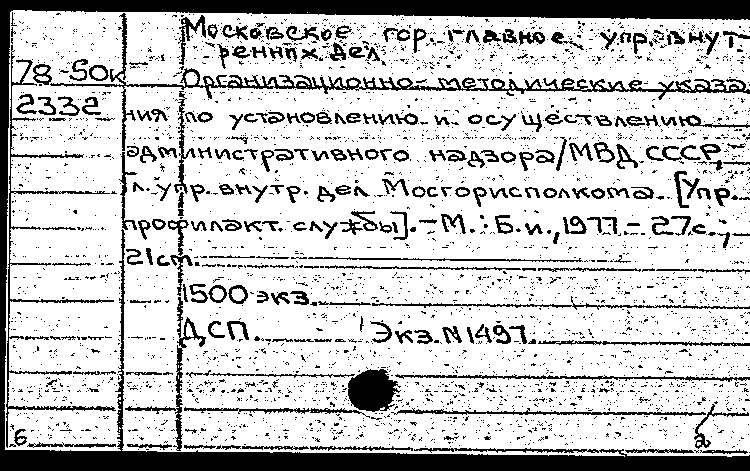 Московское гор. главное упр. внут-
ренних дел
78-50к Организационно-методические указа
2332 ния по установлению и осуществлению
административного надзора/МВД СССР,
Гл. упр. внутр. дел Мосгорисполкома. [Упр.
профилакт. службы].-М.: Б.и., 1977.- 27с.;
21см.
1500 экз.
ДСП. Экз. N 1497.
6 2